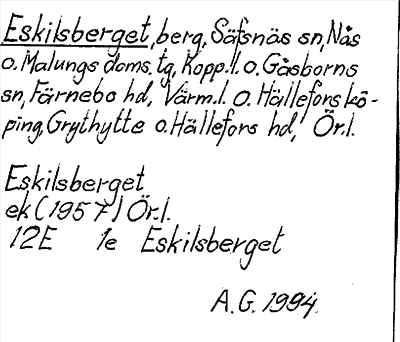 Eskilsberget, berg, Säfsnäs sn, Nås
o. Malungs doms. tg, Kopp.l. o. Gåsborns
sn, Färnebo hd, Värm.l. o. Hällefors kö-
ping, Grythytte o. Hällefors hd, Ör.l.
Eskilsberget
ek (1957) Ör.l.
12E 1e Eskilsberget
A.G. 1994